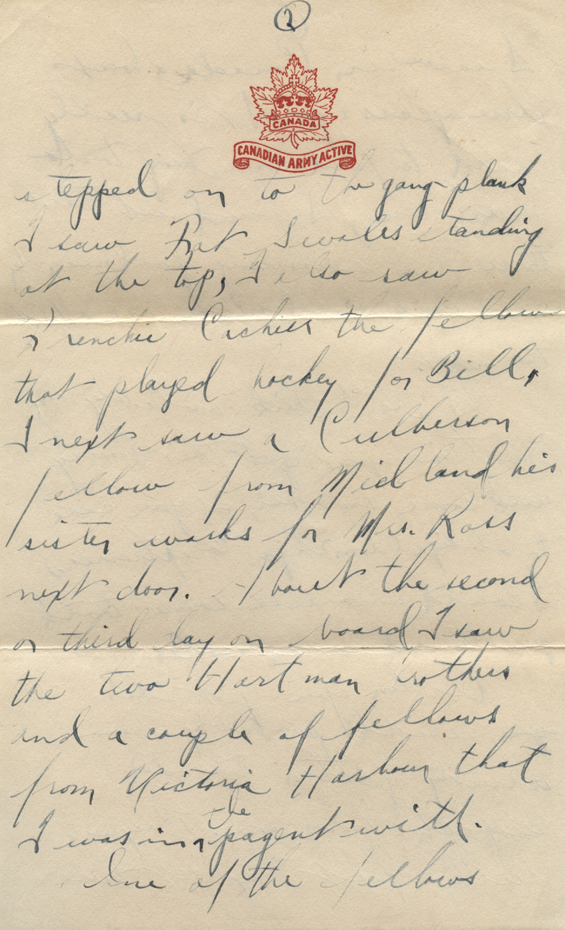 2
CANADA
CANADIAN ARMY ACTIVE
stepped on to the gang plank
I saw Swales standing
at the top, I also saw
Frenchie the fellow
that played hockey for Bill,
I next saw a Culberson
fellow from Midland his
sister works for Mrs. Ross
next door. About the second
or third day on board I saw
the two Hartman brothers
and a couple of fellows
from Victoria Harbour that
I was in the pagent with.
One of the fellows